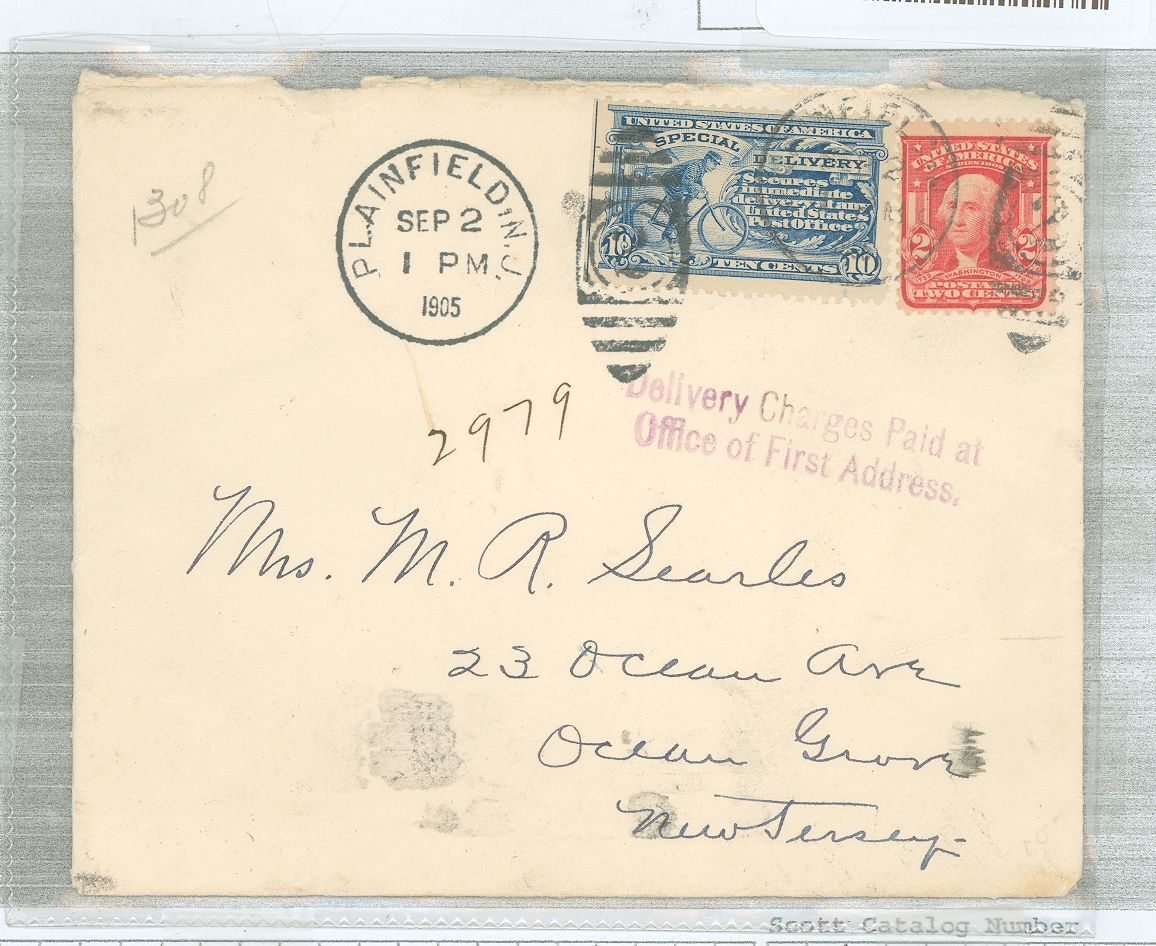 308
PLAINFIELD, N.J.
SEP 2
1 PM
1905
UNITED STATES OF AMERICA
SPECIAL DELIVERY
Secures
immediate
delivery at any
United States
Post Office
10 TEN CENTS 10
UNITED STATES
OF AMERICA
SERIES 1902
2 2
1732 WASHINGTON
POSTA
TWO CENT
2979
Delivery Charges Paid at
Office of First Address.
Mrs. M. R. Searles
23 Ocean Ave
Ocean Grove
New Jersey-
Scott Catalog Number